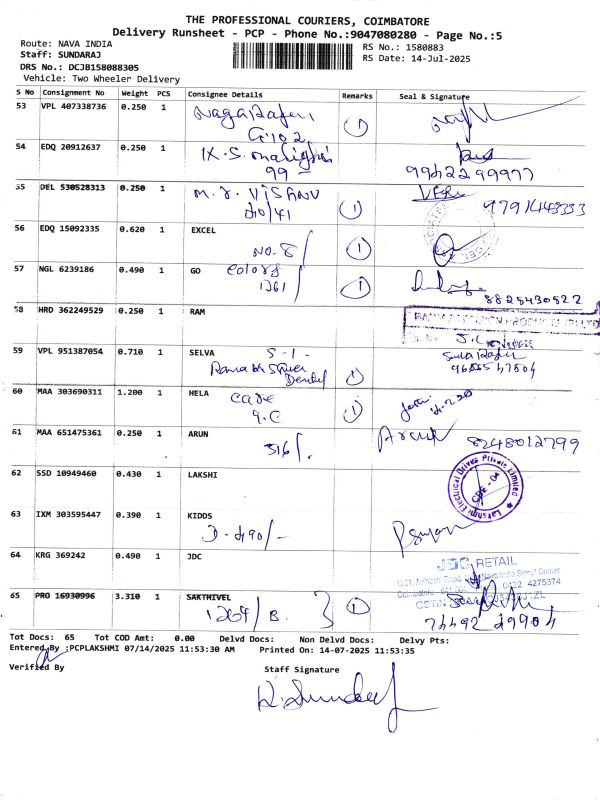 THE PROFESSIONAL COURIERS, COIMBATORE
Delivery Runsheet - PCP - Phone No.:9047080280 - Page No.:5
Route: NAVA INDIA
RS No.: 1580883
Staff: SUNDARAJ
RS Date: 14-Jul-2025
DRS No.: DCJB158088305
Vehicle: Two Wheeler Delivery
S No Consignment No Weight PCS Consignee Details Remarks Seal & Signature
53 VPL 407338736 0.250 1
1
54 EDQ 20912637 0.250 1
99 -
9942299977
55 DEL 530528313 0.250 1 M. r. Vishnu
40/41 1
9791448333
56 EDQ 15092335 0.620 1 EXCEL
NO. 8/ 1
57 NGL 6239186 0.490 1 GO colors
1261/ 1
8825430522
58 HRD 362249529 0.250 1 RAM
59 VPL 951387054 0.710 1 SELVA S-1-
Dental 1
60 MAA 303690311 1.200 1 HELA care
9.C 1
61 MAA 651475361 0.250 1 ARUN
316/. Arun 8248012799
62 SSD 10949460 0.430 1 LAKSHI
Lakshmi Electrical Drives Private Limited
CBE - 04
63 IXM 303595447 0.390 1 KIDDS
D. 490/-
64 KRG 369242 0.490 1 JDC
JDC RETAIL
1231, Avinashi Road, Nava India Signal Corner
0422 4275374
65 PRO 16930996 3.310 1 SAKTHIVEL
1264/B. 1
74492 29904
Tot Docs: 65 Tot COD Amt: 0.00 Delvd Docs: Non Delvd Docs: Delvy Pts:
Entered By :PCPLAKSHMI 07/14/2025 11:53:30 AM Printed On: 14-07-2025 11:53:35
Verified By
Staff Signature